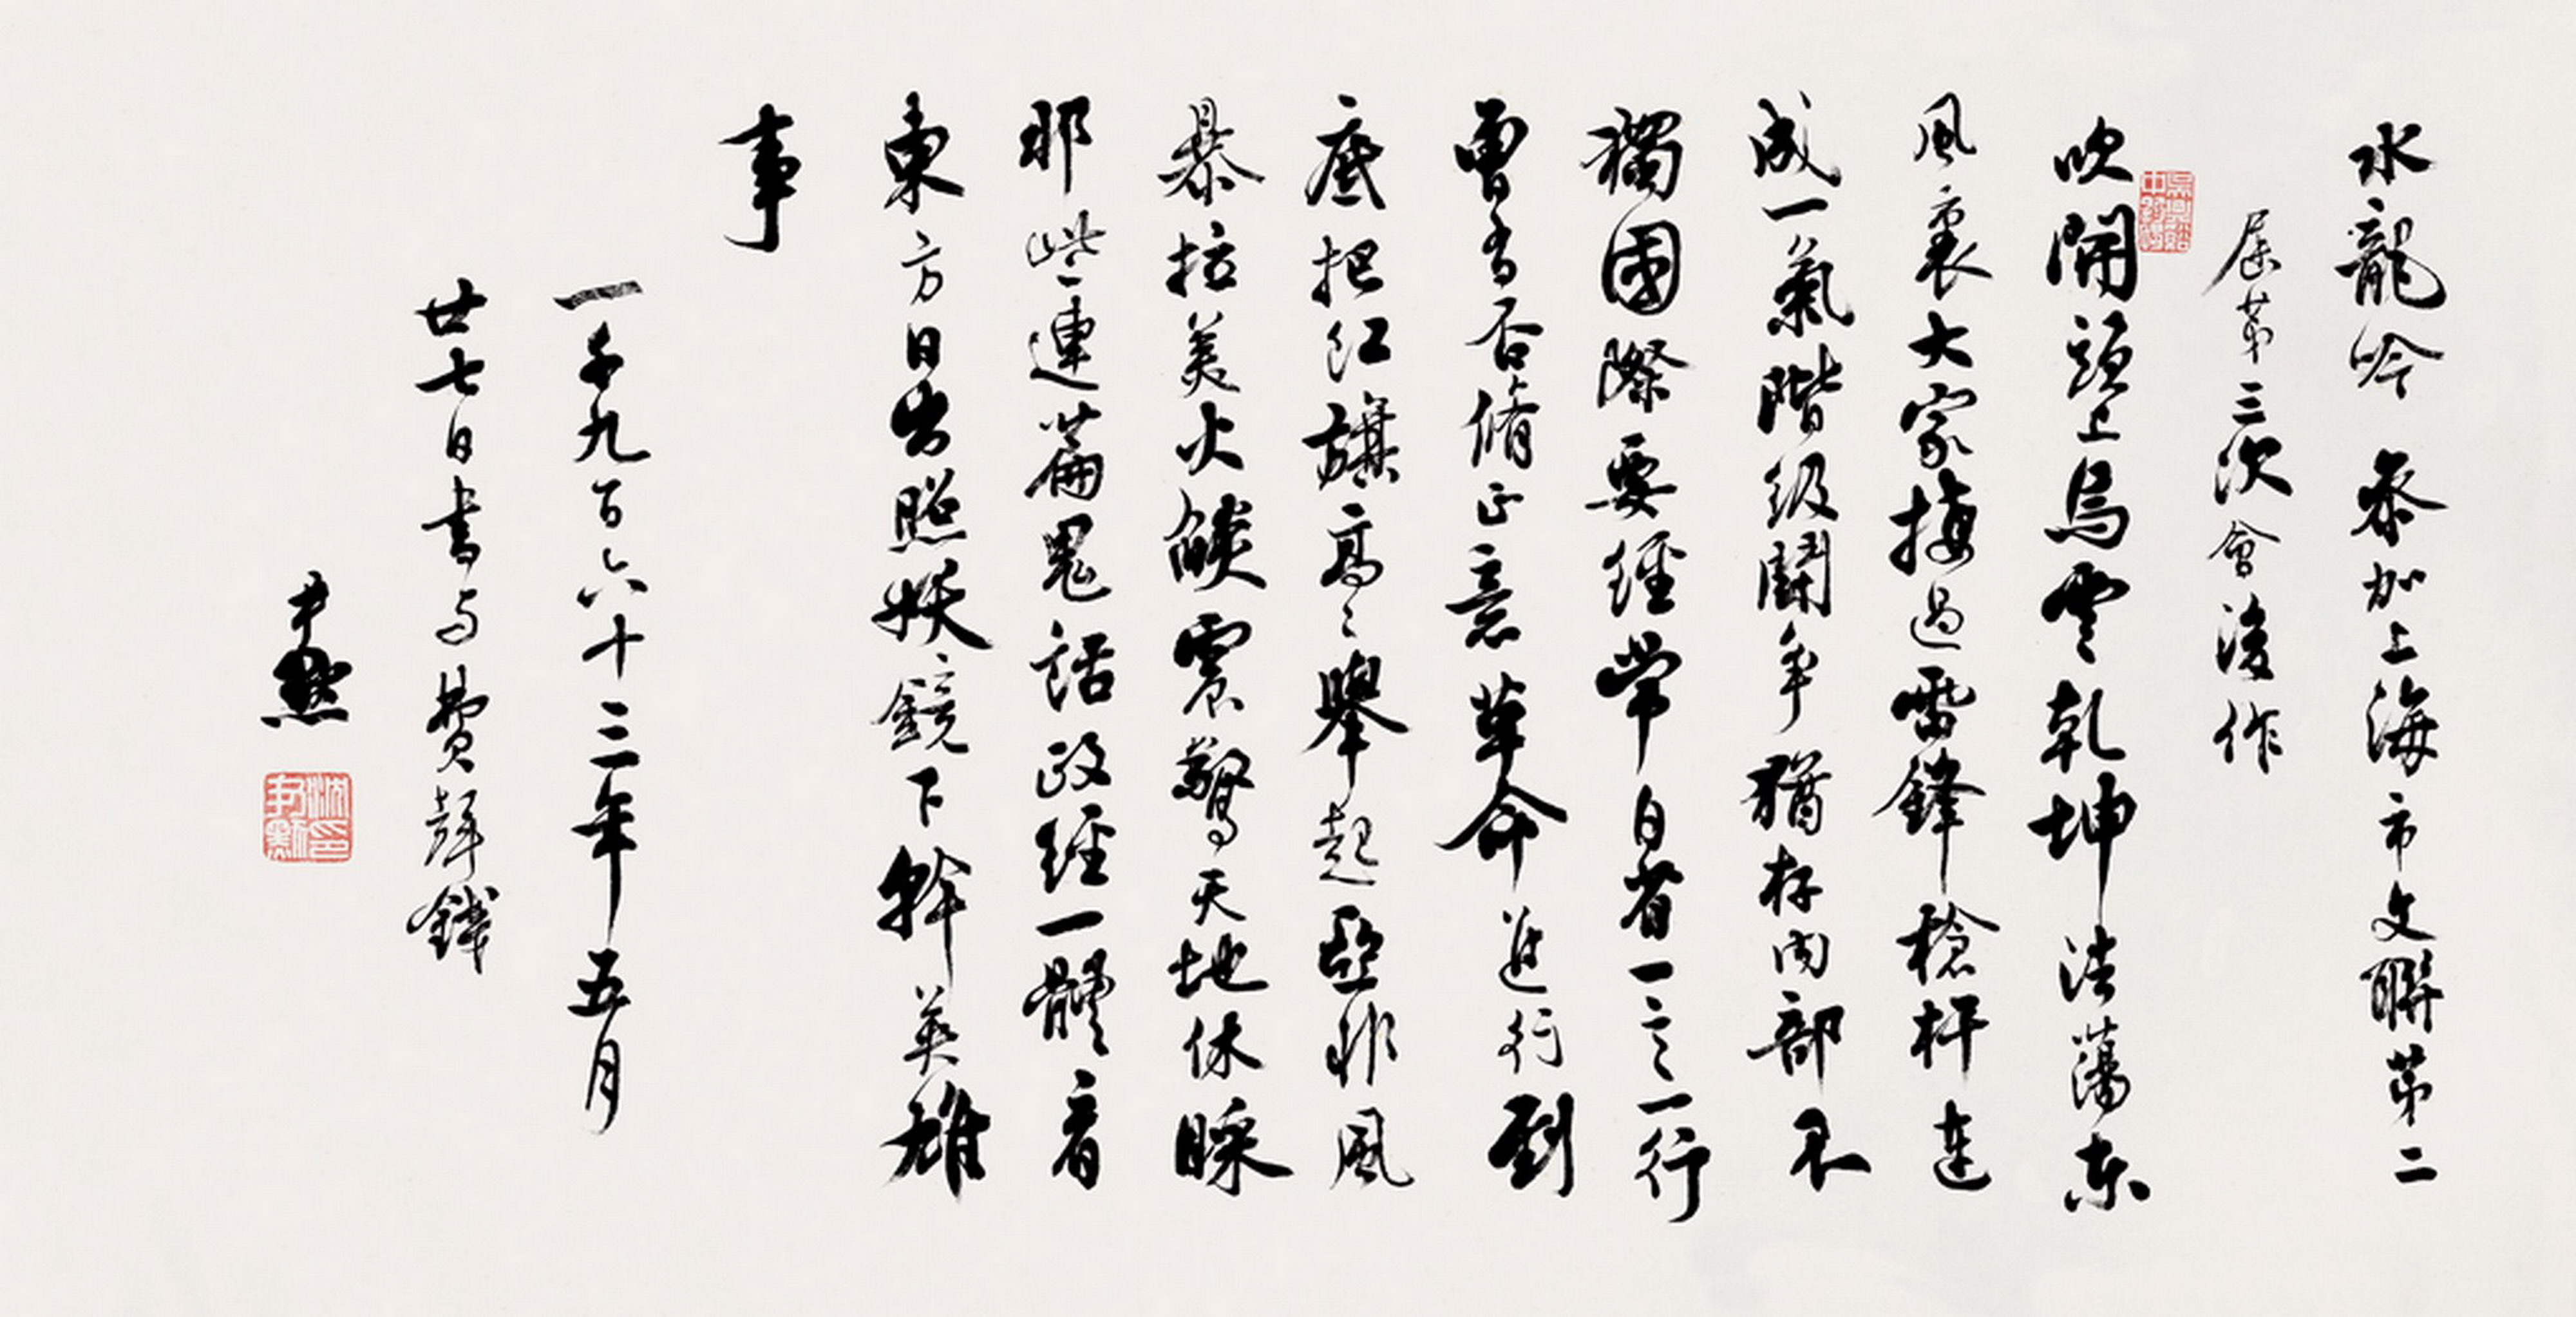 水龍吟 參加上海市文聯第二
屆第三次會後作
吹開頭上烏雲乾坤浩蕩東
風裏大家接過雷鋒槍桿連
成一氣階級鬪爭猶存內部不
獨國際要經常自省一言一行
曾有否脩正意 革命進行到
底把紅旗高々舉起亞非風
暴拉美火燄震驚天地休睬
那些連篇鬼話政經一體看
東方日出照妖鏡下幹英雄
事
一千九百六十三年五月
廿七日書与費聲錢
尹默
沈尹默印